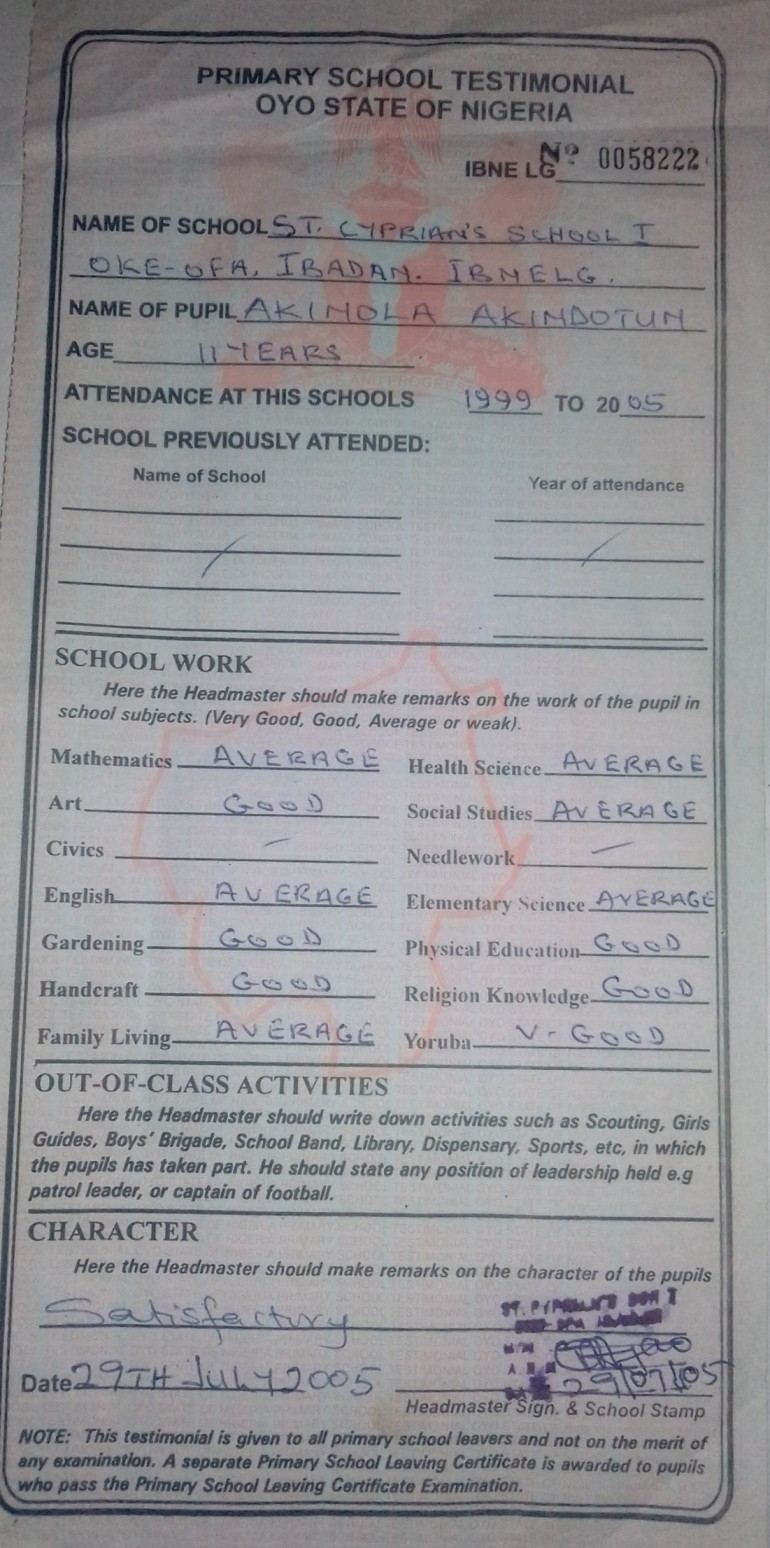 PRIMARY SCHOOL TESTIMONIAL
OYO STATE OF NIGERIA
IBNE LG Nº 0058222
NAME OF SCHOOL ST. CYPRIAN'S SCHOOL I
OKE-OFA, IBADAN. IBNELG.
NAME OF PUPIL AKINOLA AKINDOTUN
AGE 11 YEARS
ATTENDANCE AT THIS SCHOOLS 1999 TO 2005
SCHOOL PREVIOUSLY ATTENDED:
Name of School Year of attendance
SCHOOL WORK
Here the Headmaster should make remarks on the work of the pupil in
school subjects. (Very Good, Good, Average or weak).
Mathematics AVERAGE Health Science AVERAGE
Art GOOD Social Studies AVERAGE
Civics — Needlework —
English AVERAGE Elementary Science AVERAGE
Gardening GOOD Physical Education GOOD
Handcraft GOOD Religion Knowledge GOOD
Family Living AVERAGE Yoruba V-GOOD
OUT-OF-CLASS ACTIVITIES
Here the Headmaster should write down activities such as Scouting, Girls
Guides, Boys' Brigade, School Band, Library, Dispensary, Sports, etc, in which
the pupils has taken part. He should state any position of leadership held e.g
patrol leader, or captain of football.
CHARACTER
Here the Headmaster should make remarks on the character of the pupils
Satisfactory
Date 29TH JULY 2005 29/07/05
Headmaster Sign. & School Stamp
NOTE: This testimonial is given to all primary school leavers and not on the merit of
any examination. A separate Primary School Leaving Certificate is awarded to pupils
who pass the Primary School Leaving Certificate Examination.